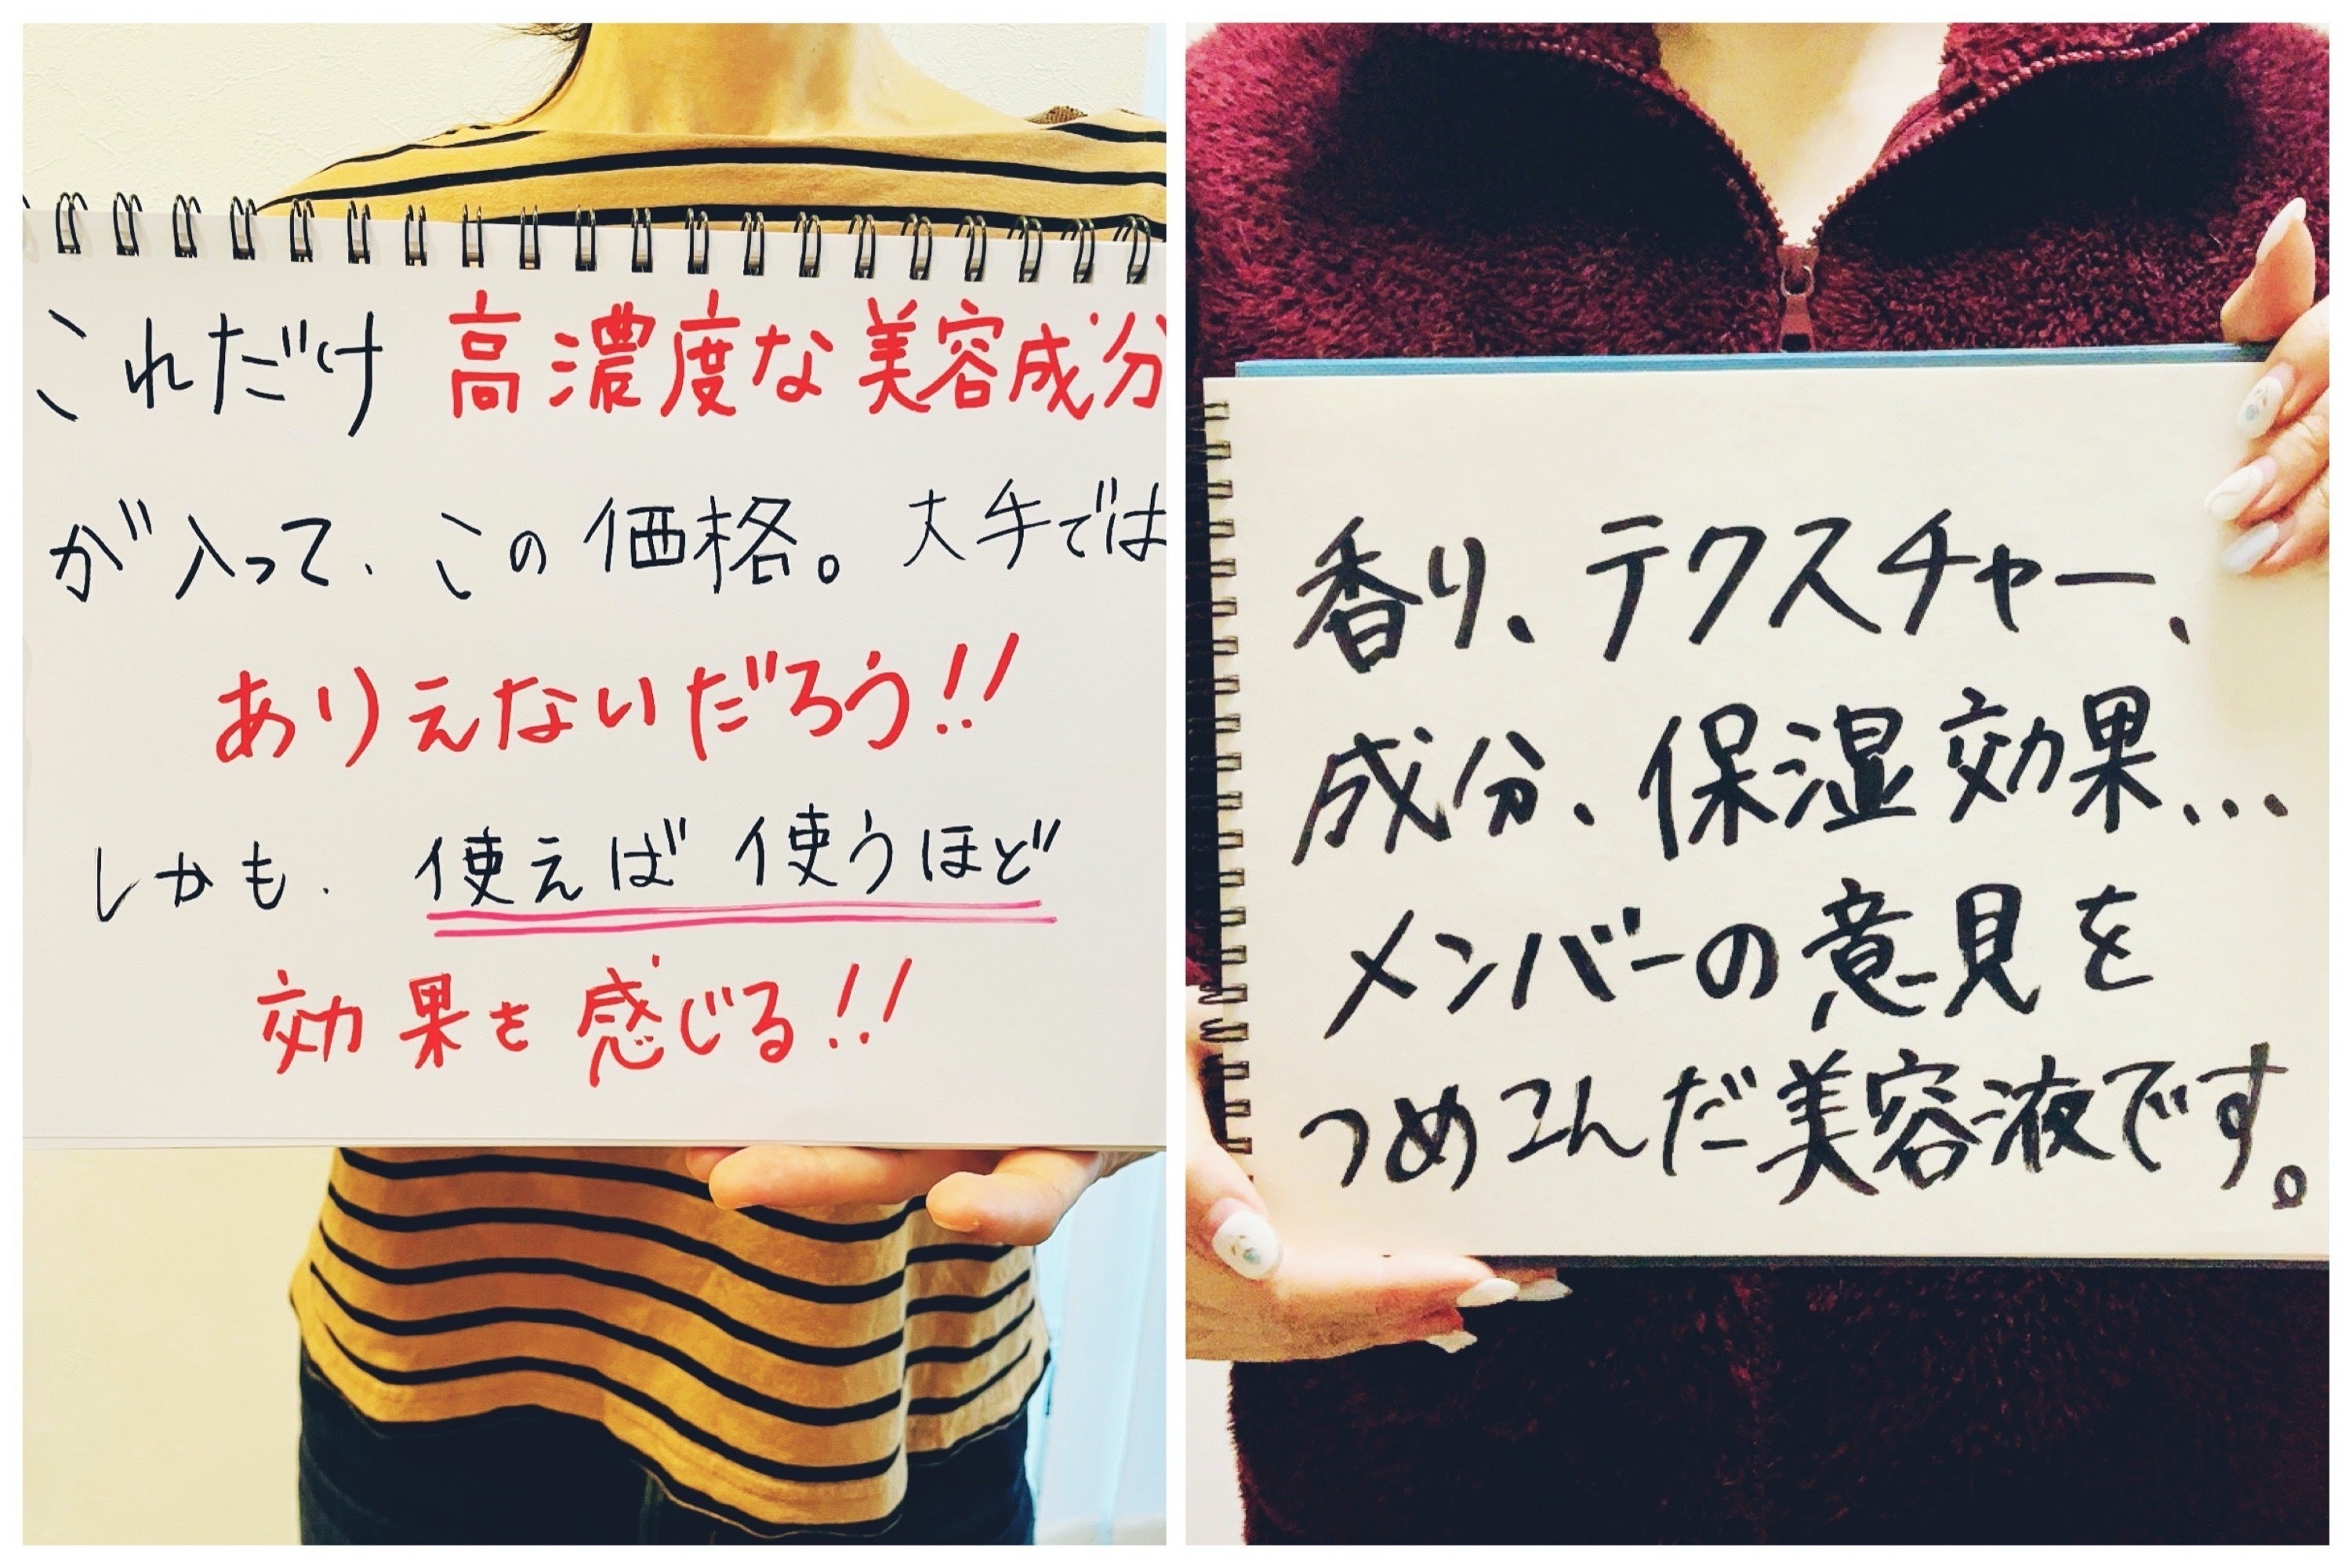 これだけ 高濃度な美容成分
が入って、この価格。大手では
ありえないだろう!!
しかも、使えば使うほど
効果を感じる!!
香り、テクスチャー、
成分、保湿効果...
メンバーの意見を
つめこんだ美容液です。